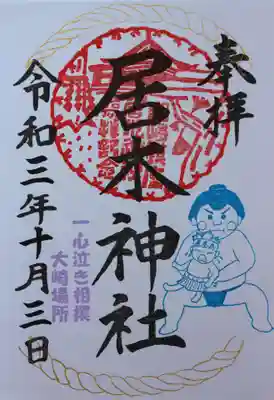 奉拝
居木神社
令和三年十月三日
一心泣き相撲
大崎場所